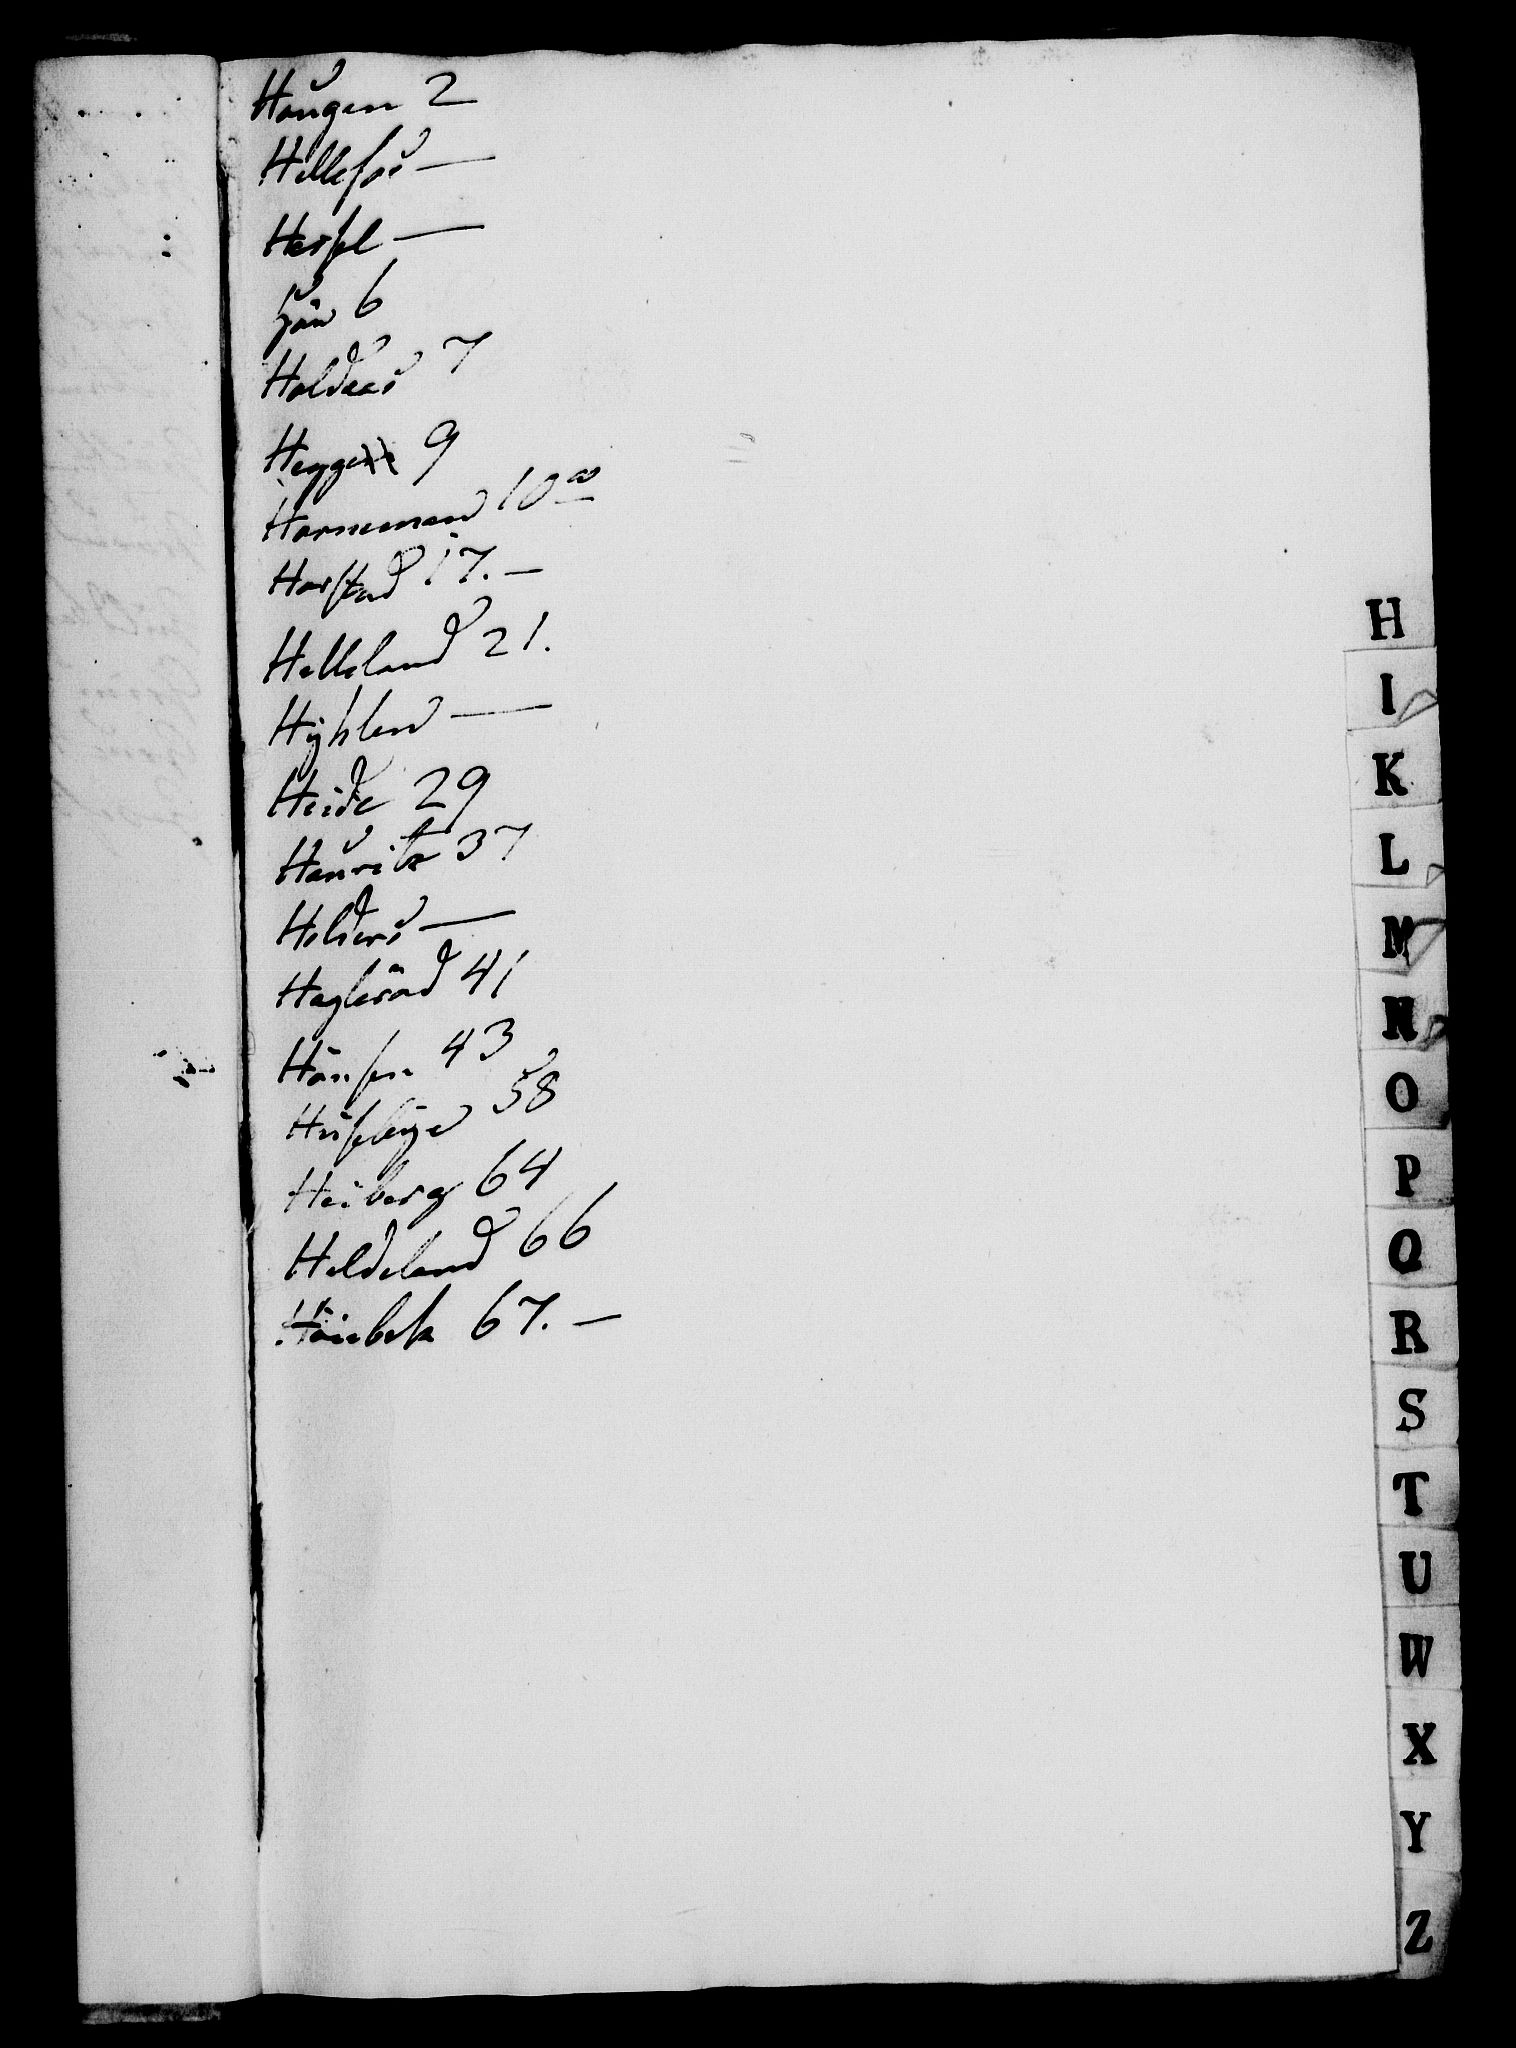 Haugen 2
Hellefos —
Hersel —
Høu 6
Holdaas 7
Hegge 9
Horneman 10
Harstad 17. —
Helleland 21.
Hyhlen —
Heide 29
Hauritz 37
Holters —
Hagleröd 41
Hansen 43
Husebye 58
Heiberg 64
Heldeland 66
Hönbek 67. —
H
I
K
L
M
N
O
P
Q
R
S
T
U
W
X
Y
Z